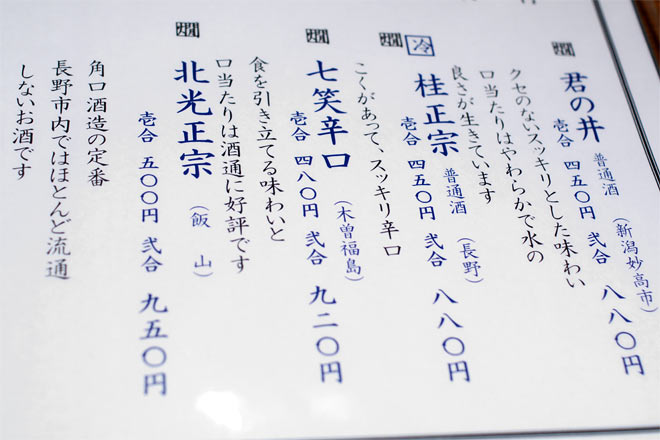 燗
君の井 普通酒 （新潟妙高市）
壱合 四五〇円 弐合 八八〇円
クセのないスッキリとした味わい
口当たりはやわらかで水の
良さが生きています
冷 燗
桂正宗 普通酒 （長野）
壱合 四五〇円 弐合 八八〇円
こくがあって、スッキリ辛口
燗
七笑辛口 （木曽福島）
壱合 四八〇円 弐合 九二〇円
食を引き立てる味わいと
口当たりは酒通に好評です
燗
北光正宗 （飯山）
壱合 五〇〇円 弐合 九五〇円
角口酒造の定番
長野市内ではほとんど流通
しないお酒です